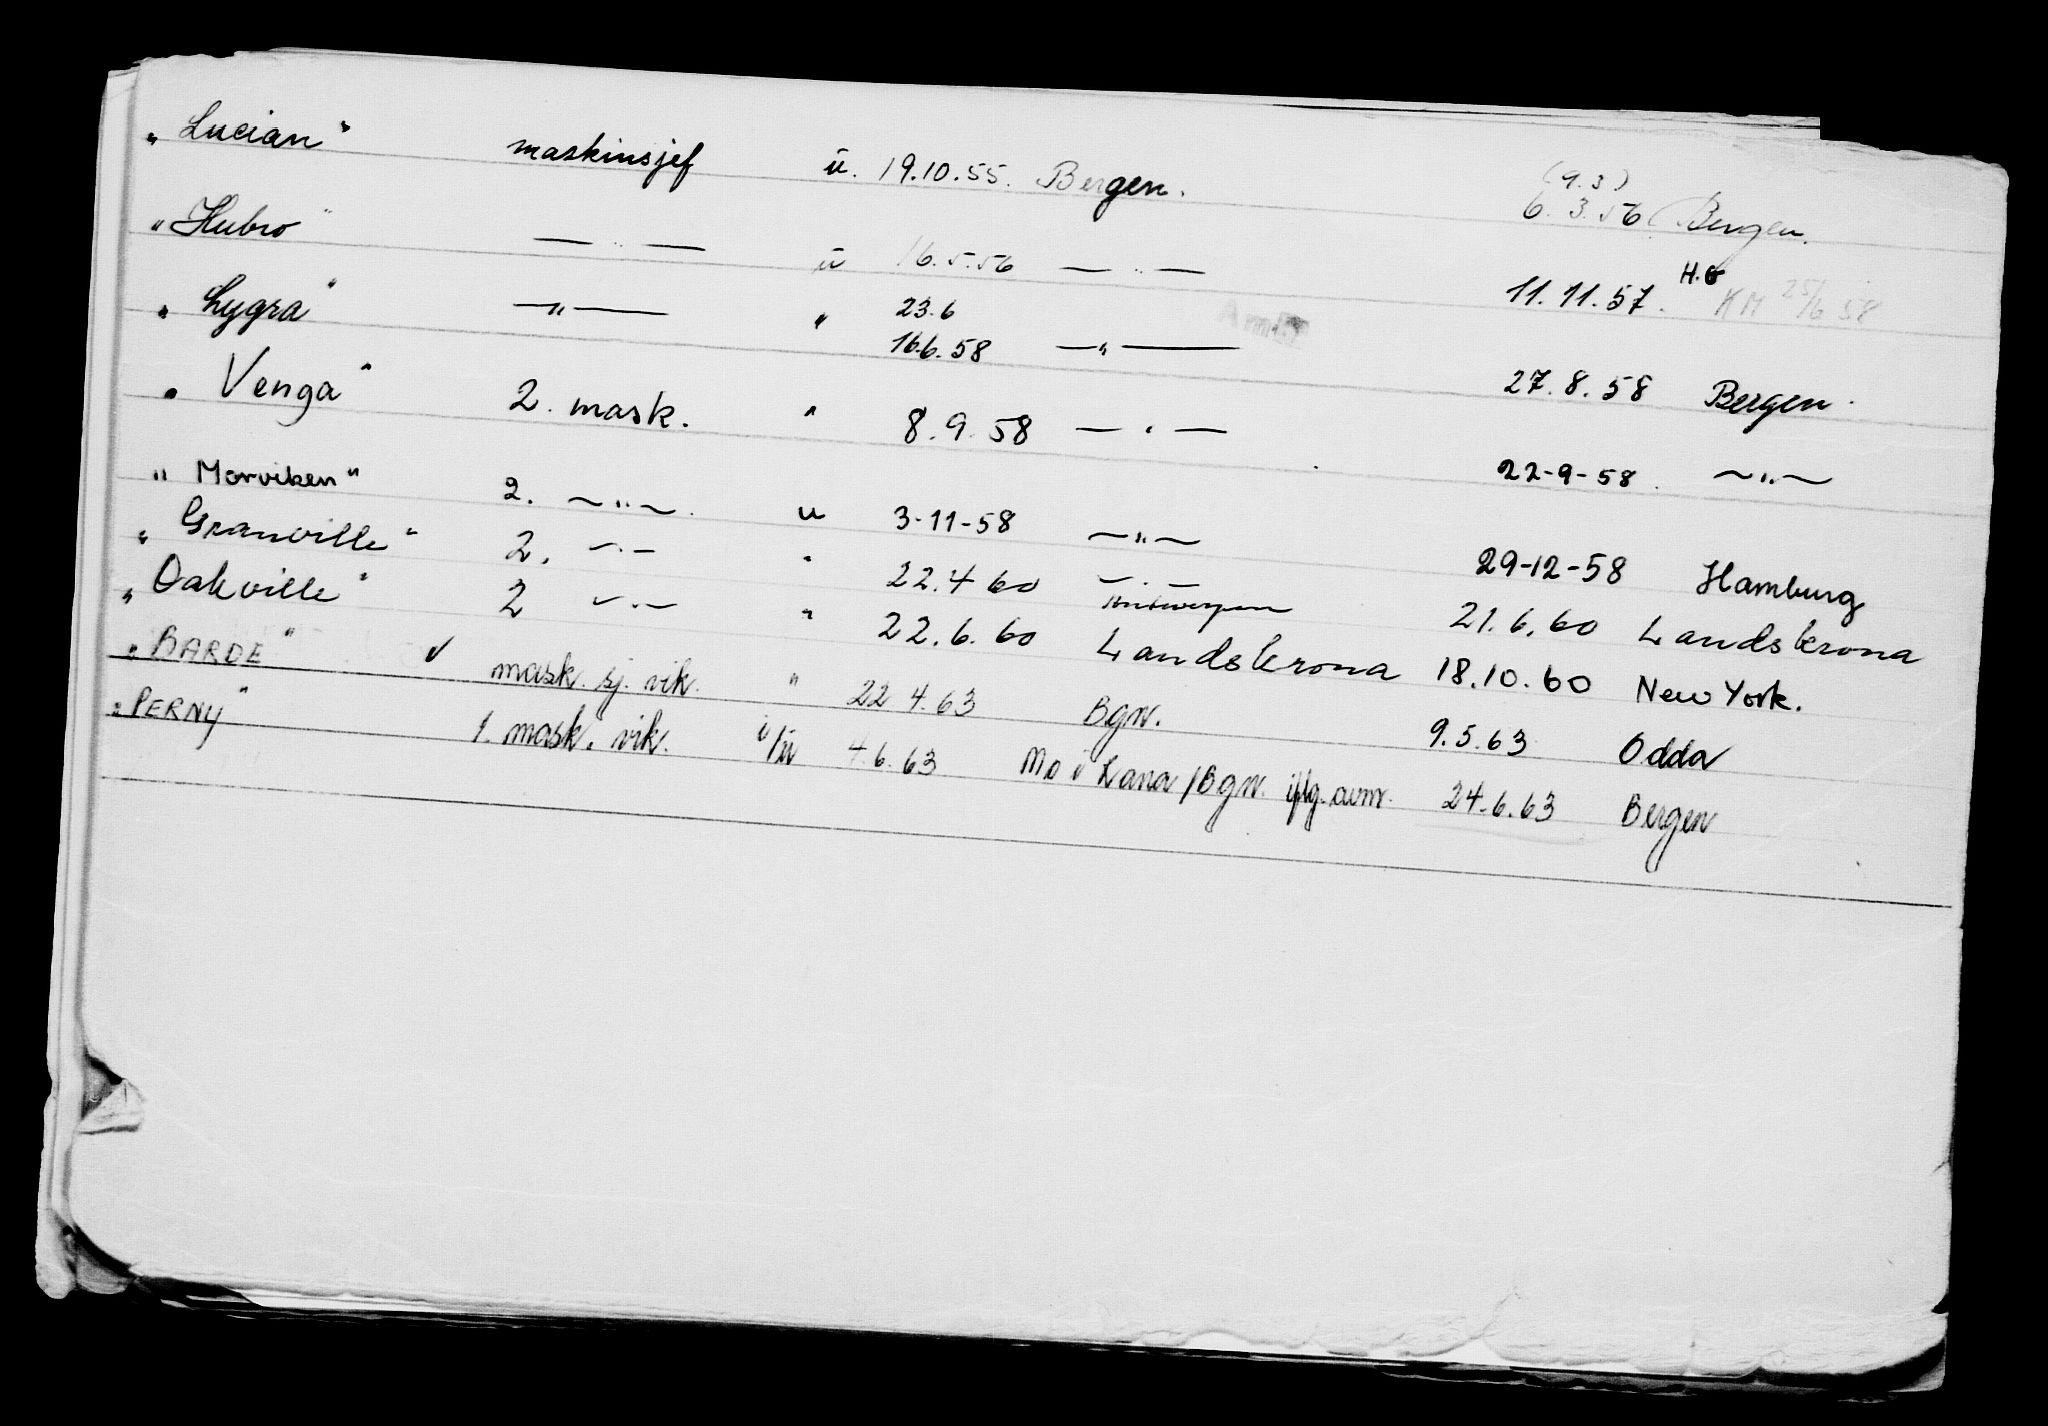 „ Lucian" maskinsjef ü. 19.10.55. Bergen. (9.3) 6.3.56 Bergen.
„ Hubro" — „ — ü 16.5.56 — „ — 11.11.57. H.G KM 25/6 58
„ Lygra" — „ — „ 23.6 16.6.58 — „ — 27.8.58 Bergen.
„ Venga" 2. mask. „ 8.9.58 — „ — 22-9-58. — „ —
„ Morviken" 2. — „ — u 3-11-58 — „ — 29-12-58 Hamburg
„ Granville" 2. — „ — „ 22.4 60 — „ — Antwerpen 21.6.60 Landskrona
„ Oakville" 2 — „ — „ 22.6.60 Landskrona 18.10.60 New York.
„ BARDE" √ mask. sj. vik. „ 22 4.63 Bgn. 9.5.63 Odda
„ PERNY" 1. mask. vik. i/ü 4.6.63 Mo i Rana/Bgn. iflg. avm. 24.6.63 Bergen